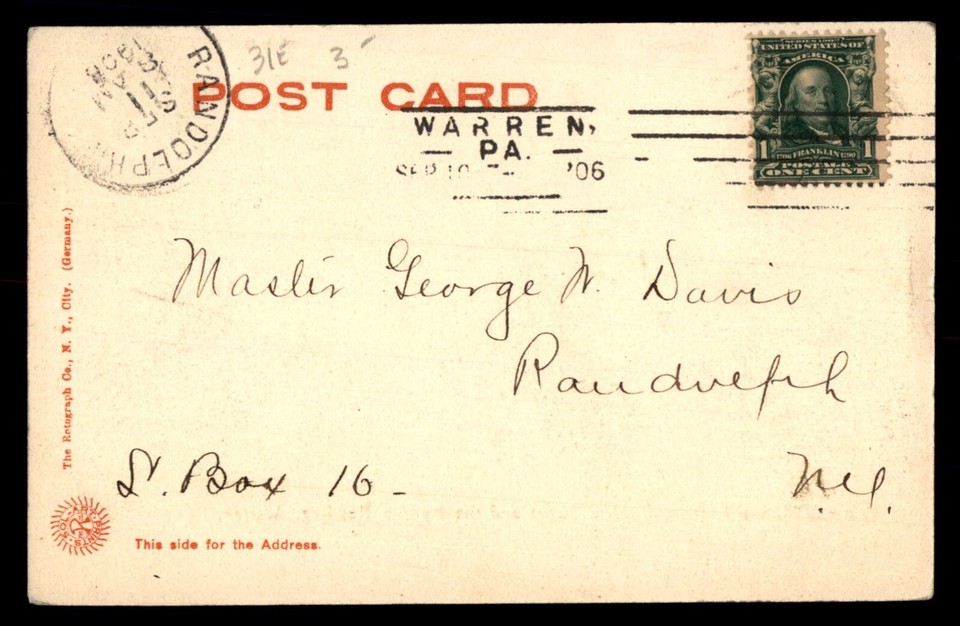 31E 3
POST CARD
RANDOLPH
SEP
11
AM
1906
WARREN,
PA.
SEP 10
'06
SERIES 1902
UNITED STATES OF
AMERICA
1 1706 FRANKLIN 1790 1
POSTAGE
ONE CENT
Master George W. Davis
Randolph
L. Box 16 -
The Rotograph Co., N. Y., City. (Germany.)
This side for the Address.